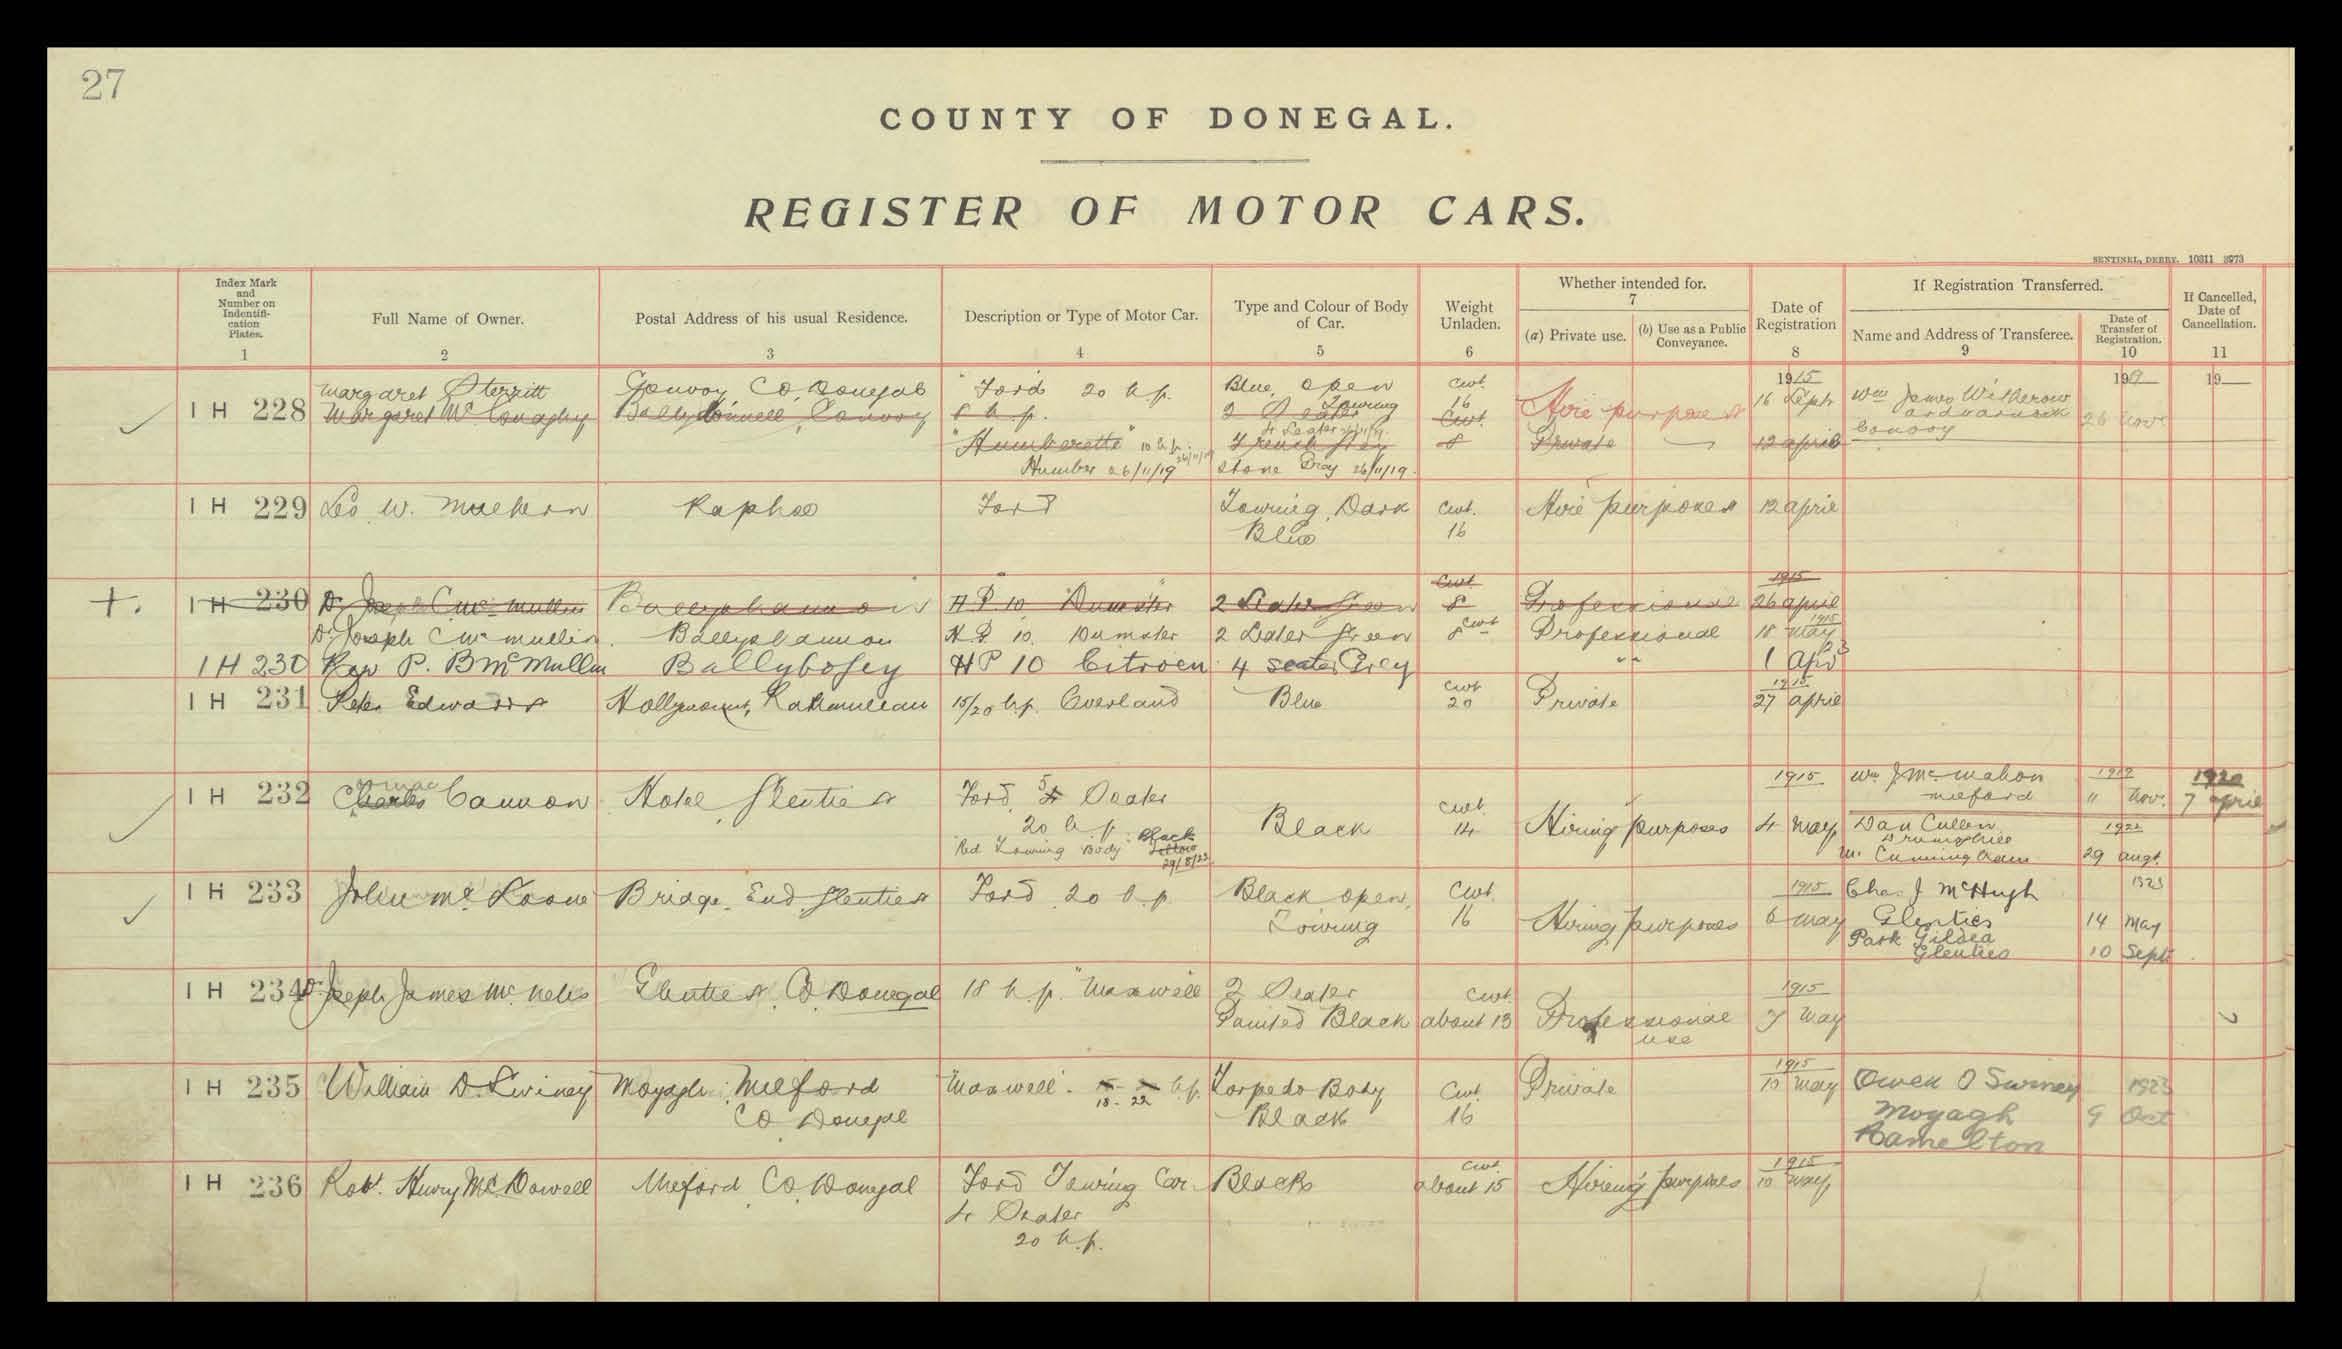 27
COUNTY OF DONEGAL.
REGISTER OF MOTOR CARS.
SENTINEL, DERRY. 10311 3973
Index Mark and Number on Indentifi-cation Plates. 1
Full Name of Owner. 2
Postal Address of his usual Residence. 3
Description or Type of Motor Car. 4
Type and Colour of Body of Car. 5
Weight Unladen. 6
Whether intended for. 7
(a) Private use.
(b) Use as a Public Conveyance.
Date of Registration 8
If Registration Transferred.
Name and Address of Transferee. 9
Date of Transfer of Registration. 10
If Cancelled, Date of Cancellation. 11
IH 228
Margaret Sterritt
Margaret Mc Conaghy
Convoy Co Donegal
Convoy
Ford 20 h.p.
8 h.p.
"Humberette" 10 h.p. 26/11/19
Humber 26/11/19
Blue, open
Touring
2 Seater
4 Seater
French Grey
Stone Gray 26/11/19.
Cwt. 16
Cwt. 8
Hire purposes
Private
1915
16 Sept
12 april
Wm James Witherow
Convoy
19
26 Nov
19
IH 229
Leo W.
Raphoe
Ford
Touring, Dark
Blue
Cwt. 16
Hire purposes
12 april
IH 230
Dr Joseph C Mc Mullin
Ballyshannon
HP 10 "Humber"
2 Seater Green
Cwt. 8
Professional
1915
26 april
Dr Joseph C Mc Mullin
Ballyshannon
HP 10. Humber
2 Seater Green
8 Cwt
Professional
18 May 1915
IH 230
Rev P. B McMullin
Ballybofey
HP 10 Citroen
4 seater Grey
" "
1 Apr 23
IH 231
Peter Edwards
Hollymount, Rathmullan
15/20 h.p. Overland
Blue
Cwt. 20
Private
1915
27 april
IH 232
Charles Cannon
Hotel Glenties
Ford, 5 Seater
20 h.p.
Red Touring Body
Black
Yellow
29/8/23
Black
Cwt. 14
Hiring purposes
1915
4 May
Wm J Mc Mahon
Milford
11 Nov.
1920
7 april
Dan Cullen
Mr Cunningham
1922
29 augt.
IH 233
John Mc Loone
Bridge End Glenties
Ford 20 h.p.
Black open,
Touring
Cwt. 16
Hiring purposes
1915
6 May
Chas J McHugh
Glenties
1923
14 May
Patk Gildea
Glenties
10 Sept
IH 234
Dr Joseph James Mc Nelis
Glenties Co Donegal
18 h.p. "Maxwell"
2 Seater
Painted Black
Cwt.
about 13
Professional
use
1915
7 May
IH 235
William D Swiney
Moyagh Milford
Co Donegal
"Maxwell"
18-22 h.p.
Torpedo Body
Black
Cwt. 16
Private
1915
10 May
Owen O Swiney
Moyagh
Ramelton
1923
9 Oct
IH 236
Robt. Henry Mc Dowell
Milford Co Donegal
Ford Touring Car
4 Seater
20 h.p.
Black
Cwt.
about 15
Hireing purposes
1915
10 May